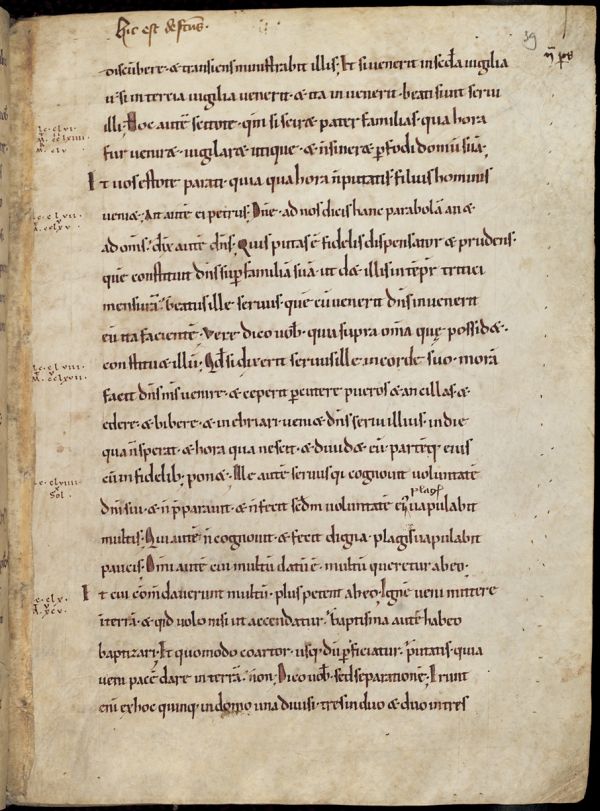 hic est defectus.
39
discubere · & transiens ministrabit illis; Et si venerit in secda vigilia
& si in tercia vigilia venerit · & ita invenerit · beati sunt servi
illi; Hoc autē scitote · qm̄ si sciret pater familias · qua hora
fur veniret · vigilaret utique · & n̄ sineret pfodi domū suā;
Et vos estote parati · quia qua hora n̄ putatis · filius hominis
veniet; Ait autē ei petrus; Dn̄e · ad nos dicis hanc parabolā an &
ad om̄s; dix̄ autē dn̄s; Quis putas ē fidelis dispensator & prudens ·
quē constituit dn̄s sup familiā suā · ut det illis in tēpr̄ tritici
mensurā; beatus ille servus · quē cū venerit dn̄s invenerit
eū ita facientē · vere dico vob̄ · qua supra om̄a quę possidet ·
constituet illū; Qd̄ si dixerit servus ille in corde suo · morā
facit dn̄s m̄s venire · & ceperit pcutere pueros & ancillas · &
edere · & bibere · & inebriari · veniet dn̄s servi illius · in die
qua n̄ sperat · & hora qua nescit · & dividet eū · partēq; eius
cū infidelib; ponet · Ille autē servus qi cognovit voluntatē
dn̄i sui · & n̄ pparavit · & n̄ fecit scdm voluntatē ei; vapulabit
plagis
multis; Qui autē n̄ cognovit · & fecit digna · plagis vapulabit
paucis · Om̄i autē cui multū datū ē · multū queretur ab eo ·
Et cui cōmdaverunt multū · plus petent ab eo · Ignē veni mittere
in terrā · & qid volo nisi ut accendatur · baptisma autē habeo
baptizari · Et quomodo coartor · usq; dū pficiatur · putatis · quia
veni pacē dare in terrā · non; Dico vob̄ · sed separationē; Erunt
eni ex hoc quinq; in domo una divisi · tres in duo & duo in tres